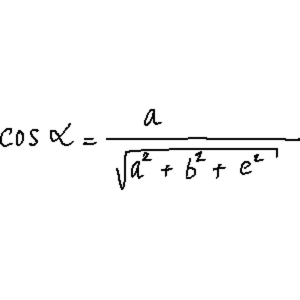 cos α = a / √(a² + b² + e²)